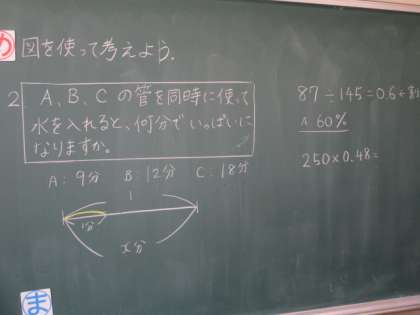 め 図を使って考えよう.
2 A、B、Cの管を同時に使って
水を入れると、何分でいっぱいに
なりますか。
A:9分 B:12分 C:18分
1
1分
x分
ま
87÷145=0.6
A 60%
250×0.48=